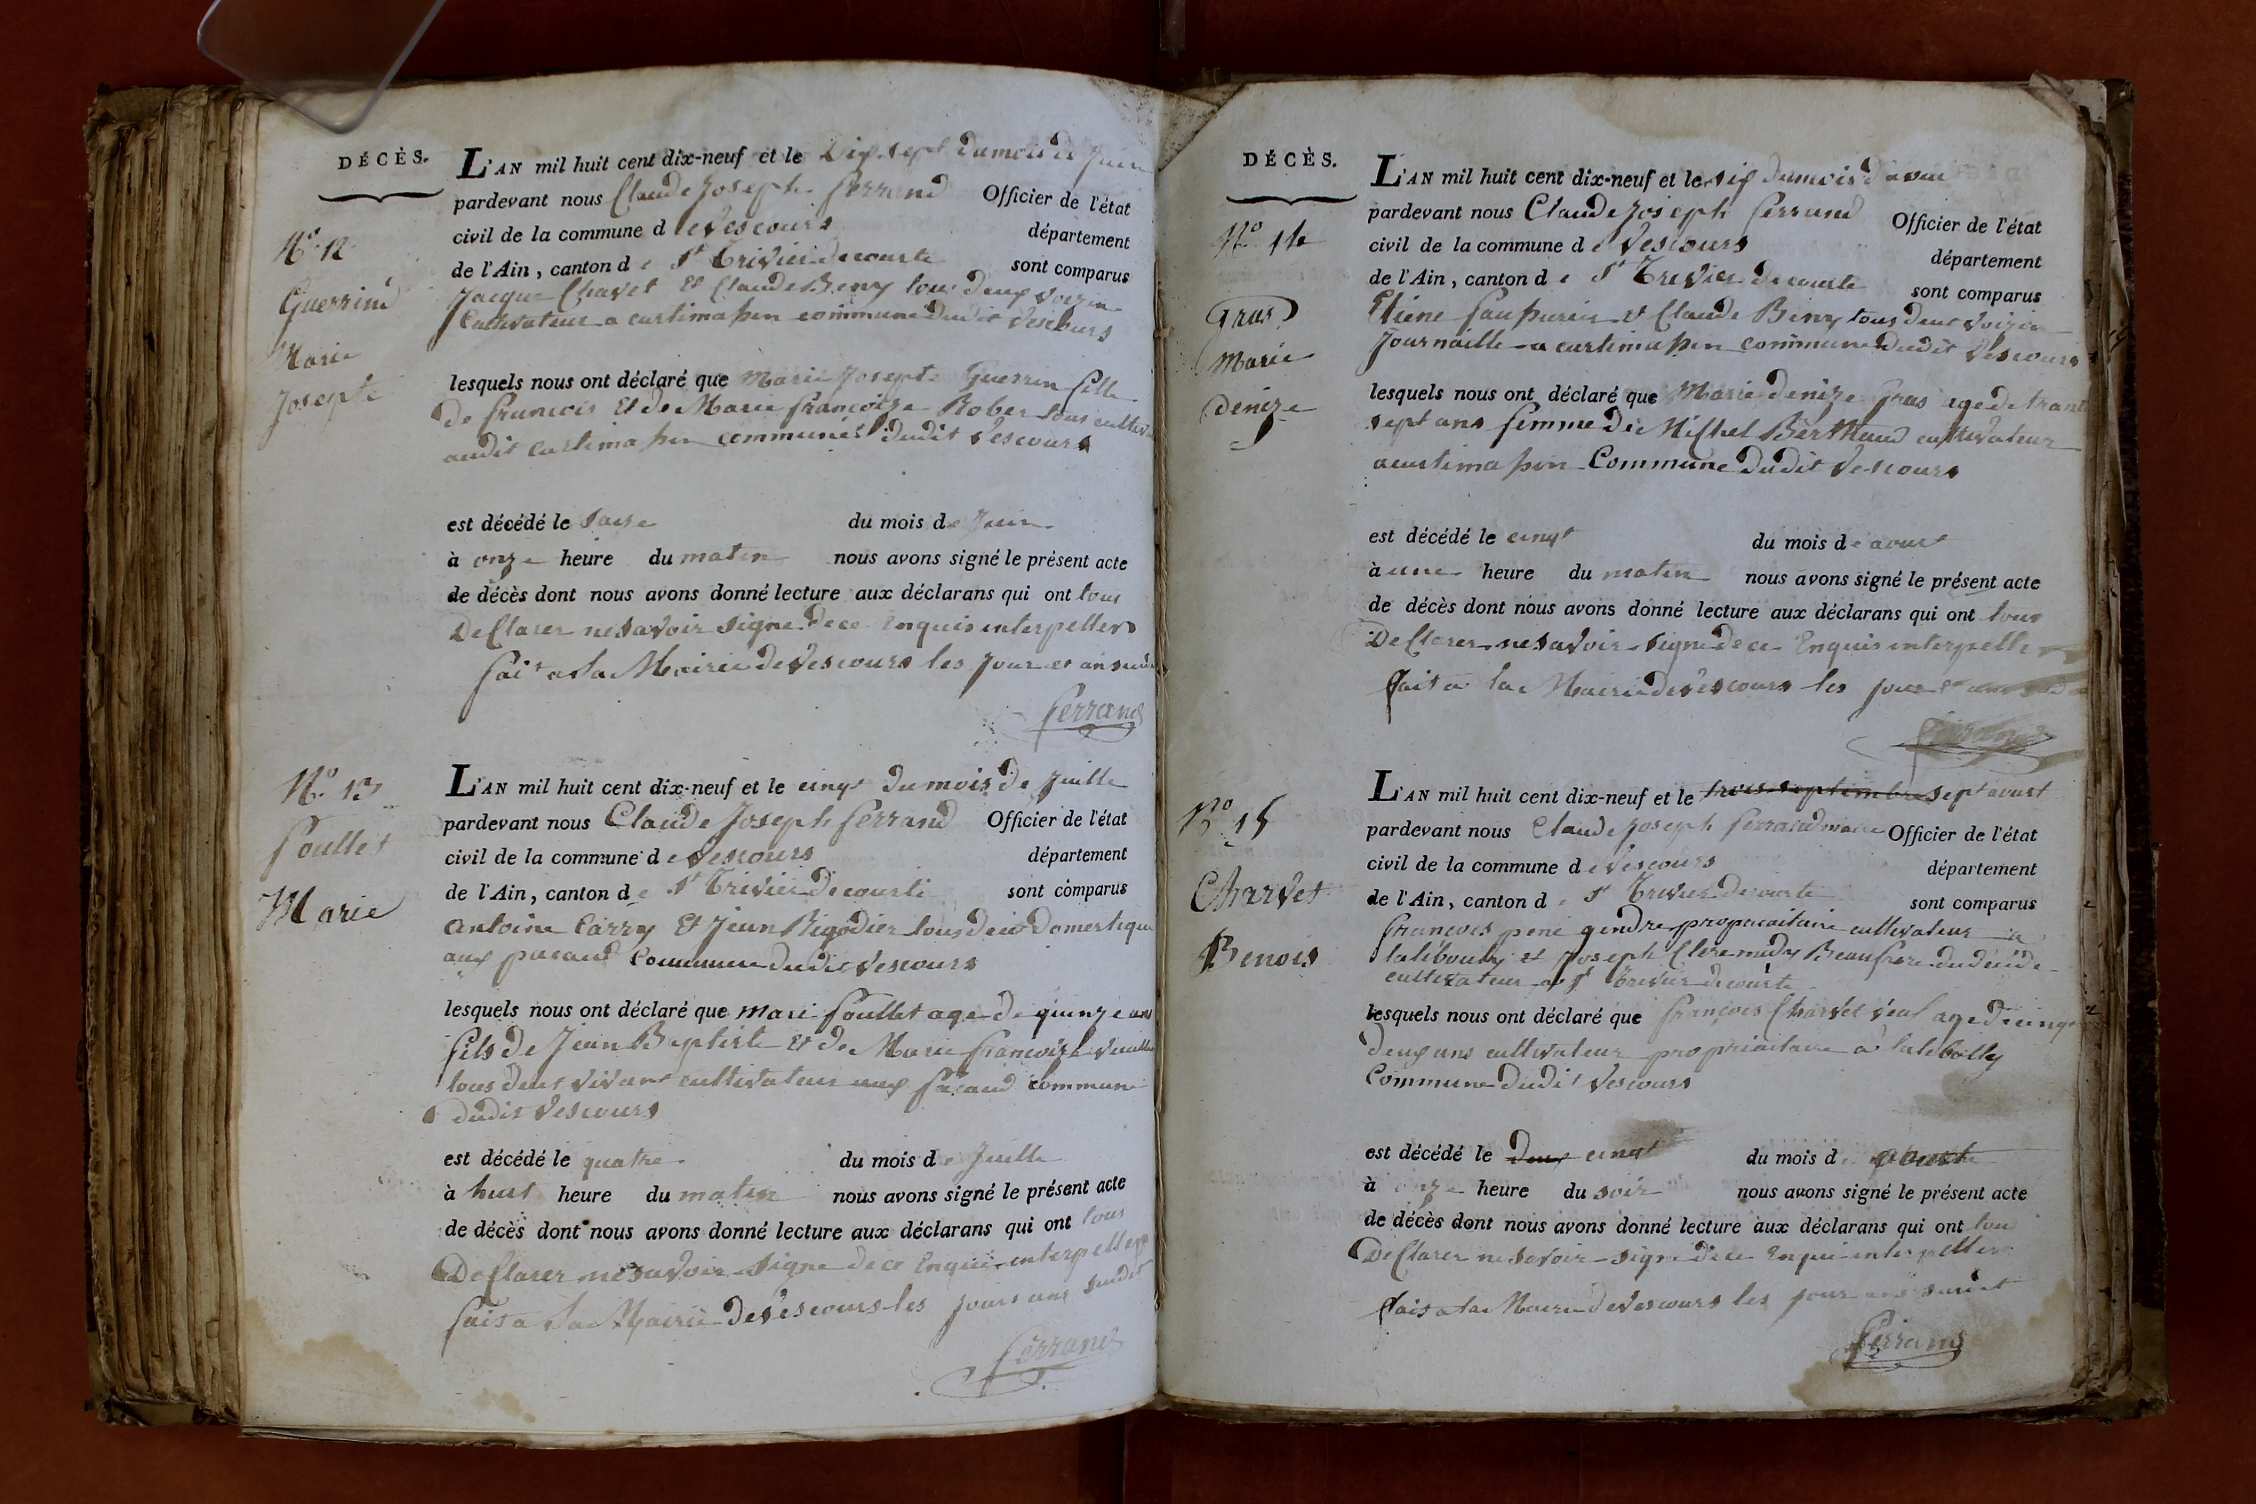 DÉCÈS.
N.º 12
Guerrind
Marie
Josepte
L'AN mil huit cent dix-neuf et le Dix sept dumois de Juin
pardevant nous Claude Joseph ferrand Officier de l'état
civil de la commune de Vescours département
de l'Ain, canton de St Trivier de courte sont comparus
Jacque Chavet Et Claude Beny tous deux voizin
Cultivateur a curtimaþin commune dudit Vescours
lesquels nous ont déclaré que Marie Josepte Guerrin fille
de francois Et de Marie francoize Rober tous
audit curtimaþin commune dudit Vescours
est décédé le saize du mois de Juin
à onze heure du maten nous avons signé le présent acte
de décès dont nous avons donné lecture aux déclarans qui ont tous
Declarer ne savoir signe de ce Enquis interpeller
fait a la Mairie de Vescours les Jour et an
ferrand
N.º 13
foullet
Marie
L'AN mil huit cent dix-neuf et le cinqt du mois de Juille
pardevant nous Claude Joseph ferrand Officier de l'état
civil de la commune de Vescours département
de l'Ain, canton de St Trivier de courte sont comparus
antoine Carry Et Jean Bigodier tous deux Domestique
aux Commune dudit Vescours
lesquels nous ont déclaré que mari foullet age de quinze ans
fils de Jean Baptiste Et de Marie francoize
tous deux vivant cultivateur aux commune
dudit Vescours
est décédé le quatre du mois de Juille
à huit heure du maten nous avons signé le présent acte
de décès dont nous avons donné lecture aux déclarans qui ont tous
Declarer ne savoir signe de ce Enquis interpeller
fait a la Mairie de Vescours les jours ans sudit
ferrand
DÉCÈS.
N.º 14
Gras
Marie
Denize
L'AN mil huit cent dix-neuf et le six dumois d'avou
pardevant nous Claude Joseph ferrand Officier de l'état
civil de la commune de Vescours département
de l'Ain, canton de St Trivier de courte sont comparus
Etiene et Claude Beny tous deux voizin
Journaille a curtimaþin commune dudit Vescours
lesquels nous ont déclaré que Marie denize Gras age de trante
sept ans femme de Michel Berthaud cultivateur
a curtimaþin Commune dudit Vescours
est décédé le cinqt du mois de avoust
à une heure du maten nous avons signé le présent acte
de décès dont nous avons donné lecture aux déclarans qui ont tous
Declarer ne savoir signe de ce Enquis interpelle
fait a la Mairie de Vescours les jour et
ferrand
N.º 15
Charvet
Benois
L'AN mil huit cent dix-neuf et le trois septembre sept avust
pardevant nous Claude Joseph ferrand maire Officier de l'état
civil de la commune de Vescours département
de l'Ain, canton de St Trivier de courte sont comparus
francois gendre cultivateur a
et Joseph Beaufrere du
cultivateur a St Trivier de courte
lesquels nous ont déclaré que françois Charvet age de cinqt
deux ans cultivateur propriaitaire a
Commune dudit Vescours
est décédé le deux cinqt du mois de avouste
à onze heure du soir nous avons signé le présent acte
de décès dont nous avons donné lecture aux déclarans qui ont tou
Declarer ne savoir signe de ce interpeller
fait a la Mairie de Vescours les jour ans sudit
ferrand